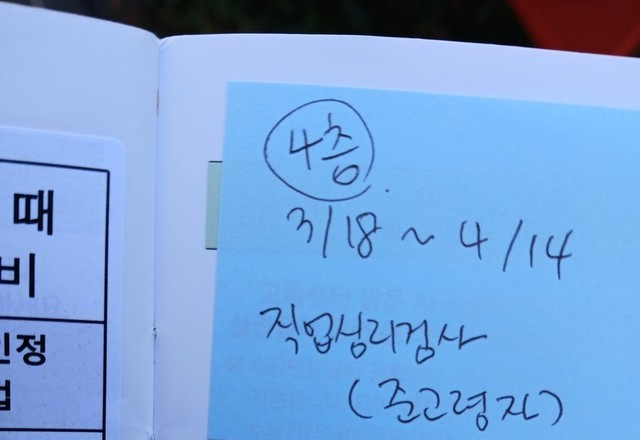 때
비
인정
업
4층
3/18 ~ 4/14
직업심리검사
(준고령자)